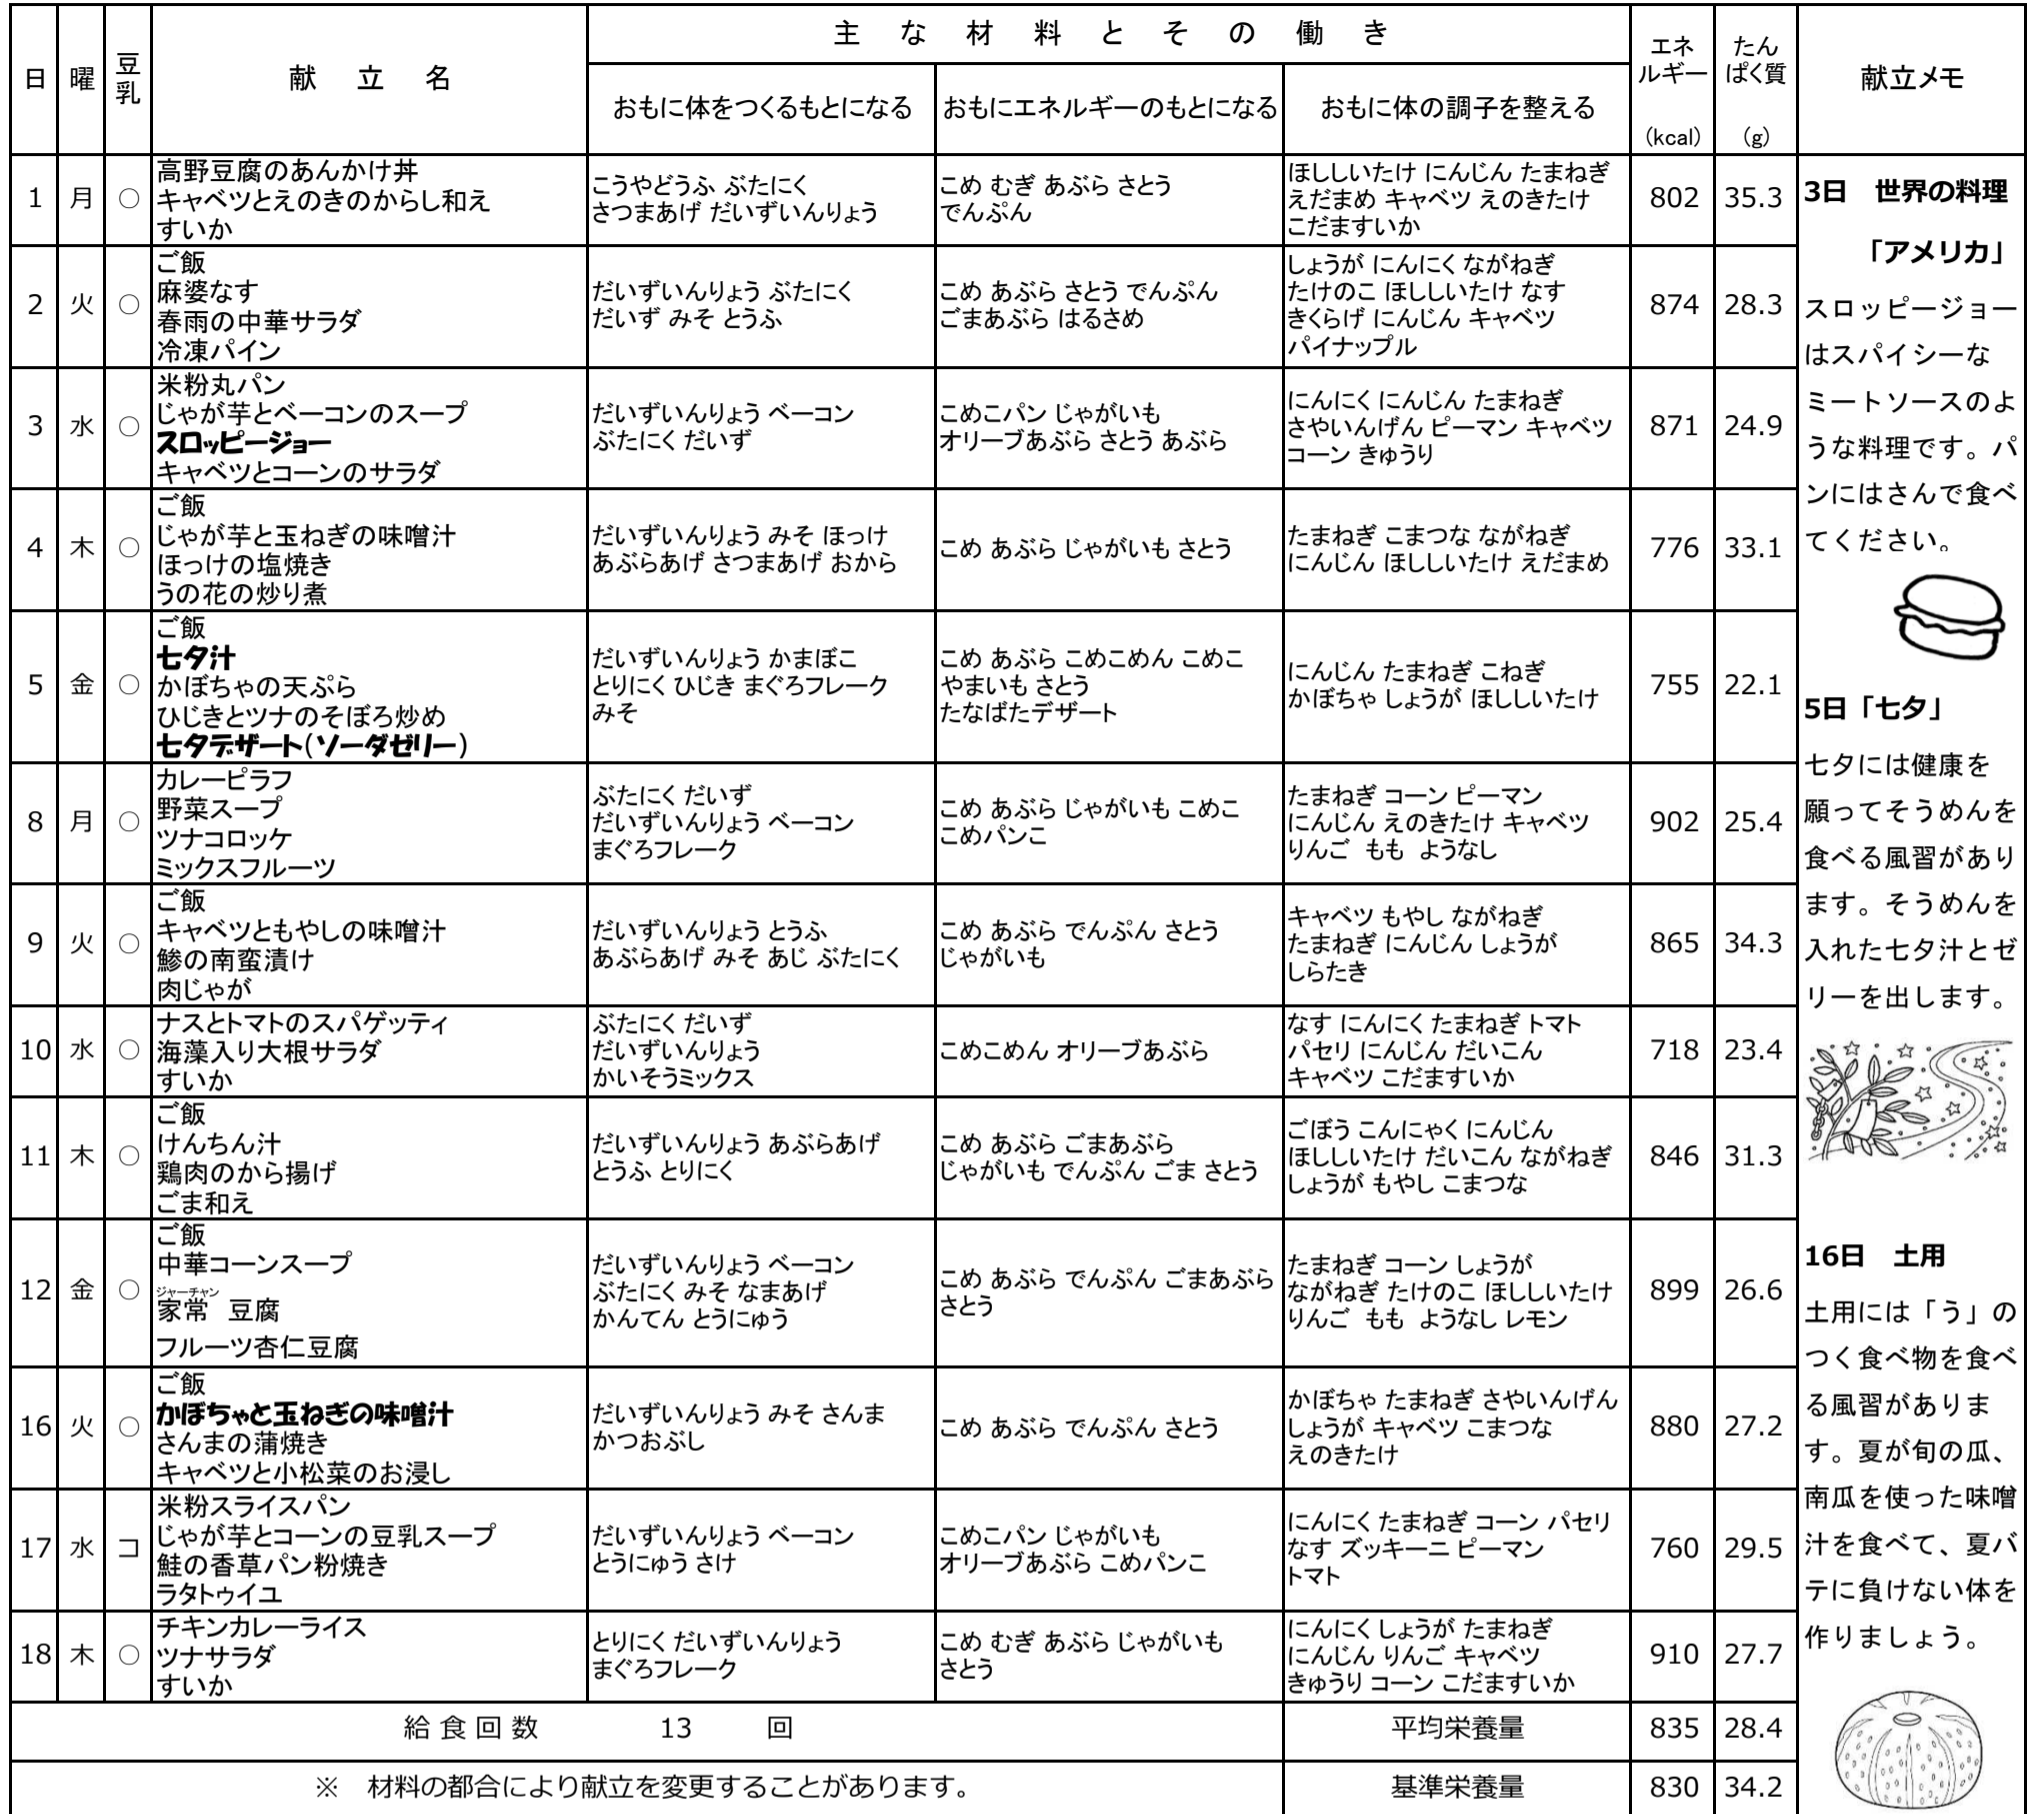 日 曜 豆乳 献立名 主な材料とその働き エネルギー (kcal) たんぱく質 (g) 献立メモ
おもに体をつくるもとになる おもにエネルギーのもとになる おもに体の調子を整える
1 月 ○
高野豆腐のあんかけ丼
キャベツとえのきのからし和え
すいか
こうやどうふ ぶたにく
さつまあげ だいずいんりょう
こめ むぎ あぶら さとう
でんぷん
ほししいたけ にんじん たまねぎ
えだまめ キャベツ えのきたけ
こだますいか
802 35.3
2 火 ○
ご飯
麻婆なす
春雨の中華サラダ
冷凍パイン
だいずいんりょう ぶたにく
だいず みそ とうふ
こめ あぶら さとう でんぷん
ごまあぶら はるさめ
しょうが にんにく ながねぎ
たけのこ ほししいたけ なす
きくらげ にんじん キャベツ
パイナップル
874 28.3
3 水 ○
米粉丸パン
じゃが芋とベーコンのスープ
スロッピージョー
キャベツとコーンのサラダ
だいずいんりょう ベーコン
ぶたにく だいず
こめこパン じゃがいも
オリーブあぶら さとう あぶら
にんにく にんじん たまねぎ
さやいんげん ピーマン キャベツ
コーン きゅうり
871 24.9
4 木 ○
ご飯
じゃが芋と玉ねぎの味噌汁
ほっけの塩焼き
うの花の炒り煮
だいずいんりょう みそ ほっけ
あぶらあげ さつまあげ おから
こめ あぶら じゃがいも さとう
たまねぎ こまつな ながねぎ
にんじん ほししいたけ えだまめ
776 33.1
5 金 ○
ご飯
七夕汁
かぼちゃの天ぷら
ひじきとツナのそぼろ炒め
七夕デザート(ソーダゼリー)
だいずいんりょう かまぼこ
とりにく ひじき まぐろフレーク
みそ
こめ あぶら こめこめん こめこ
やまいも さとう
たなばたデザート
にんじん たまねぎ こねぎ
かぼちゃ しょうが ほししいたけ
755 22.1
8 月 ○
カレーピラフ
野菜スープ
ツナコロッケ
ミックスフルーツ
ぶたにく だいず
だいずいんりょう ベーコン
まぐろフレーク
こめ あぶら じゃがいも こめこ
こめパンこ
たまねぎ コーン ピーマン
にんじん えのきたけ キャベツ
りんご もも ようなし
902 25.4
9 火 ○
ご飯
キャベツともやしの味噌汁
鯵の南蛮漬け
肉じゃが
だいずいんりょう とうふ
あぶらあげ みそ あじ ぶたにく
こめ あぶら でんぷん さとう
じゃがいも
キャベツ もやし ながねぎ
たまねぎ にんじん しょうが
しらたき
865 34.3
10 水 ○
ナスとトマトのスパゲッティ
海藻入り大根サラダ
すいか
ぶたにく だいず
だいずいんりょう
かいそうミックス
こめこめん オリーブあぶら
なす にんにく たまねぎ トマト
パセリ にんじん だいこん
キャベツ こだますいか
718 23.4
11 木 ○
ご飯
けんちん汁
鶏肉のから揚げ
ごま和え
だいずいんりょう あぶらあげ
とうふ とりにく
こめ あぶら ごまあぶら
じゃがいも でんぷん ごま さとう
ごぼう こんにゃく にんじん
ほししいたけ だいこん ながねぎ
しょうが もやし こまつな
846 31.3
12 金 ○
ご飯
中華コーンスープ
ジャーチャン
家常 豆腐
フルーツ杏仁豆腐
だいずいんりょう ベーコン
ぶたにく みそ なまあげ
かんてん とうにゅう
こめ あぶら でんぷん ごまあぶら
さとう
たまねぎ コーン しょうが
ながねぎ たけのこ ほししいたけ
りんご もも ようなし レモン
899 26.6
16 火 ○
ご飯
かぼちゃと玉ねぎの味噌汁
さんまの蒲焼き
キャベツと小松菜のお浸し
だいずいんりょう みそ さんま
かつおぶし
こめ あぶら でんぷん さとう
かぼちゃ たまねぎ さやいんげん
しょうが キャベツ こまつな
えのきたけ
880 27.2
17 水 コ
米粉スライスパン
じゃが芋とコーンの豆乳スープ
鮭の香草パン粉焼き
ラタトゥイユ
だいずいんりょう ベーコン
とうにゅう さけ
こめこパン じゃがいも
オリーブあぶら こめパンこ
にんにく たまねぎ コーン パセリ
なす ズッキーニ ピーマン
トマト
760 29.5
18 木 ○
チキンカレーライス
ツナサラダ
すいか
とりにく だいずいんりょう
まぐろフレーク
こめ むぎ あぶら じゃがいも
さとう
にんにく しょうが たまねぎ
にんじん りんご キャベツ
きゅうり コーン こだますいか
910 27.7
給食回数 13 回 平均栄養量 835 28.4
※ 材料の都合により献立を変更することがあります。 基準栄養量 830 34.2
3日 世界の料理
「アメリカ」
スロッピージョー
はスパイシーな
ミートソースのよ
うな料理です。パ
ンにはさんで食べ
てください。
5日「七夕」
七夕には健康を
願ってそうめんを
食べる風習があり
ます。そうめんを
入れた七夕汁とゼ
リーを出します。
16日 土用
土用には「う」の
つく食べ物を食べ
る風習がありま
す。夏が旬の瓜、
南瓜を使った味噌
汁を食べて、夏バ
テに負けない体を
作りましょう。